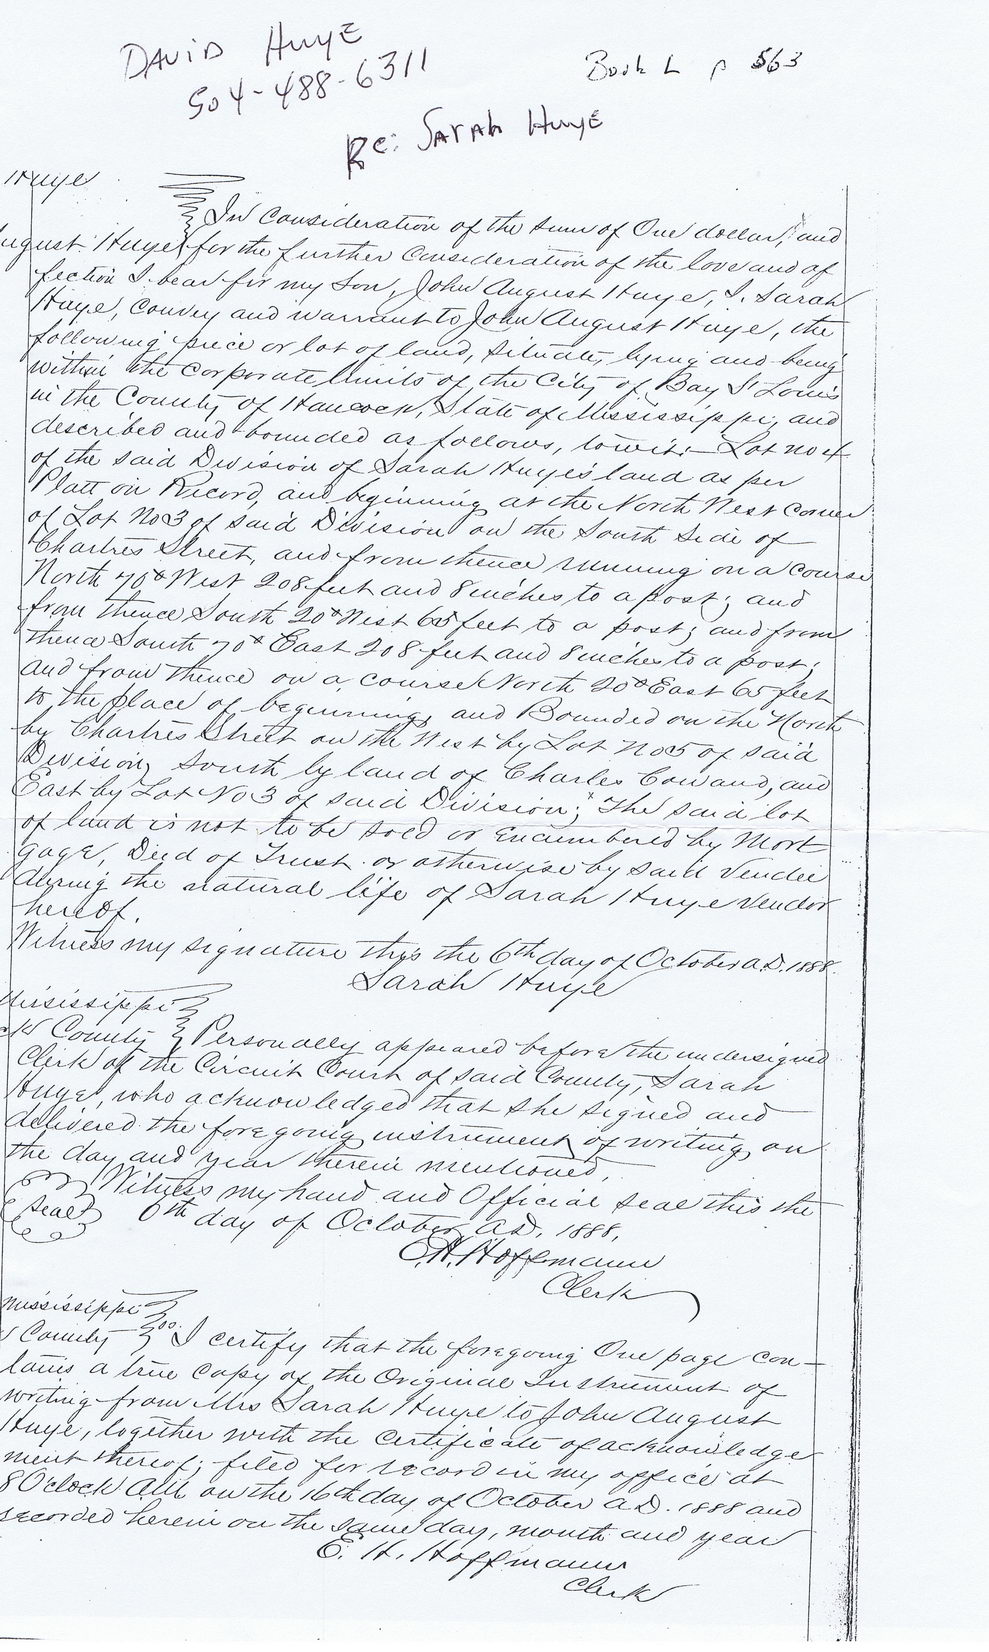 DAViD HuyE
504-488-6311
Book L p 563
Re: SArAh HuyE
Huye
In consideration of the sum of One dollar, and
ugust Huye for the further consideration of the love and af
fection I bear for my Son, John August Huye, I, Sarah
Huye, convey and warrant to John August Huye, the
following piece or lot of land, situate, lying and being
within the corporate limits of the City of Bay St Louis
in the County of Hancock, State of Mississippi, and
described and bounded as follows, towit:- Lot no 4
of the said Division of Sarah Huye's land as per
Platt on Record, and beginning at the North West corner
of Lot No 3 of said Division on the South Side of
Chartres Street, and from thence running on a course
North 70° West 208 feet and 8 inches to a post; and
from thence South 20° West 65 feet to a post; and from
thence South 70° East 208 feet and 8 inches to a post;
and from thence on a course North 20° East 65 feet
to the place of beginning, and Bounded on the North
by Chartres Street on the West by Lot No 5 of said
Division, South by land of Charles Cowand, and
East by Lot No 3 of said Division; The said lot
of land is not to be sold or encumbered by Mort
gage, Deed of Trust or otherwise by said Vendee
during the natural life of Sarah Huye Vendor
hereof.
Witness my signature this the 6th day of October A.D. 1888.
Sarah Huye
Mississippi
ck County Personally appeared before the undersigned
Clerk of the Circuit Court of said County, Sarah
Huye, who acknowledged that she signed and
delivered the foregoing instrument of writing, on
the day and year therein mentioned.
Witness my hand and Official seal this the
Seal 6th day of October A.D. 1888.
E. H. Hoffmann
Clerk
Mississippi
County I certify that the foregoing One page con-
tains a true copy of the Original Instrument of
writing from Mrs Sarah Huye to John August
Huye, together with the certificate of acknowledge
ment thereof; filed for record in my office at
8 O'clock A.M. on the 16th day of October A.D. 1888 and
recorded herein on the same day, month and year
E. H. Hoffmann
Clerk